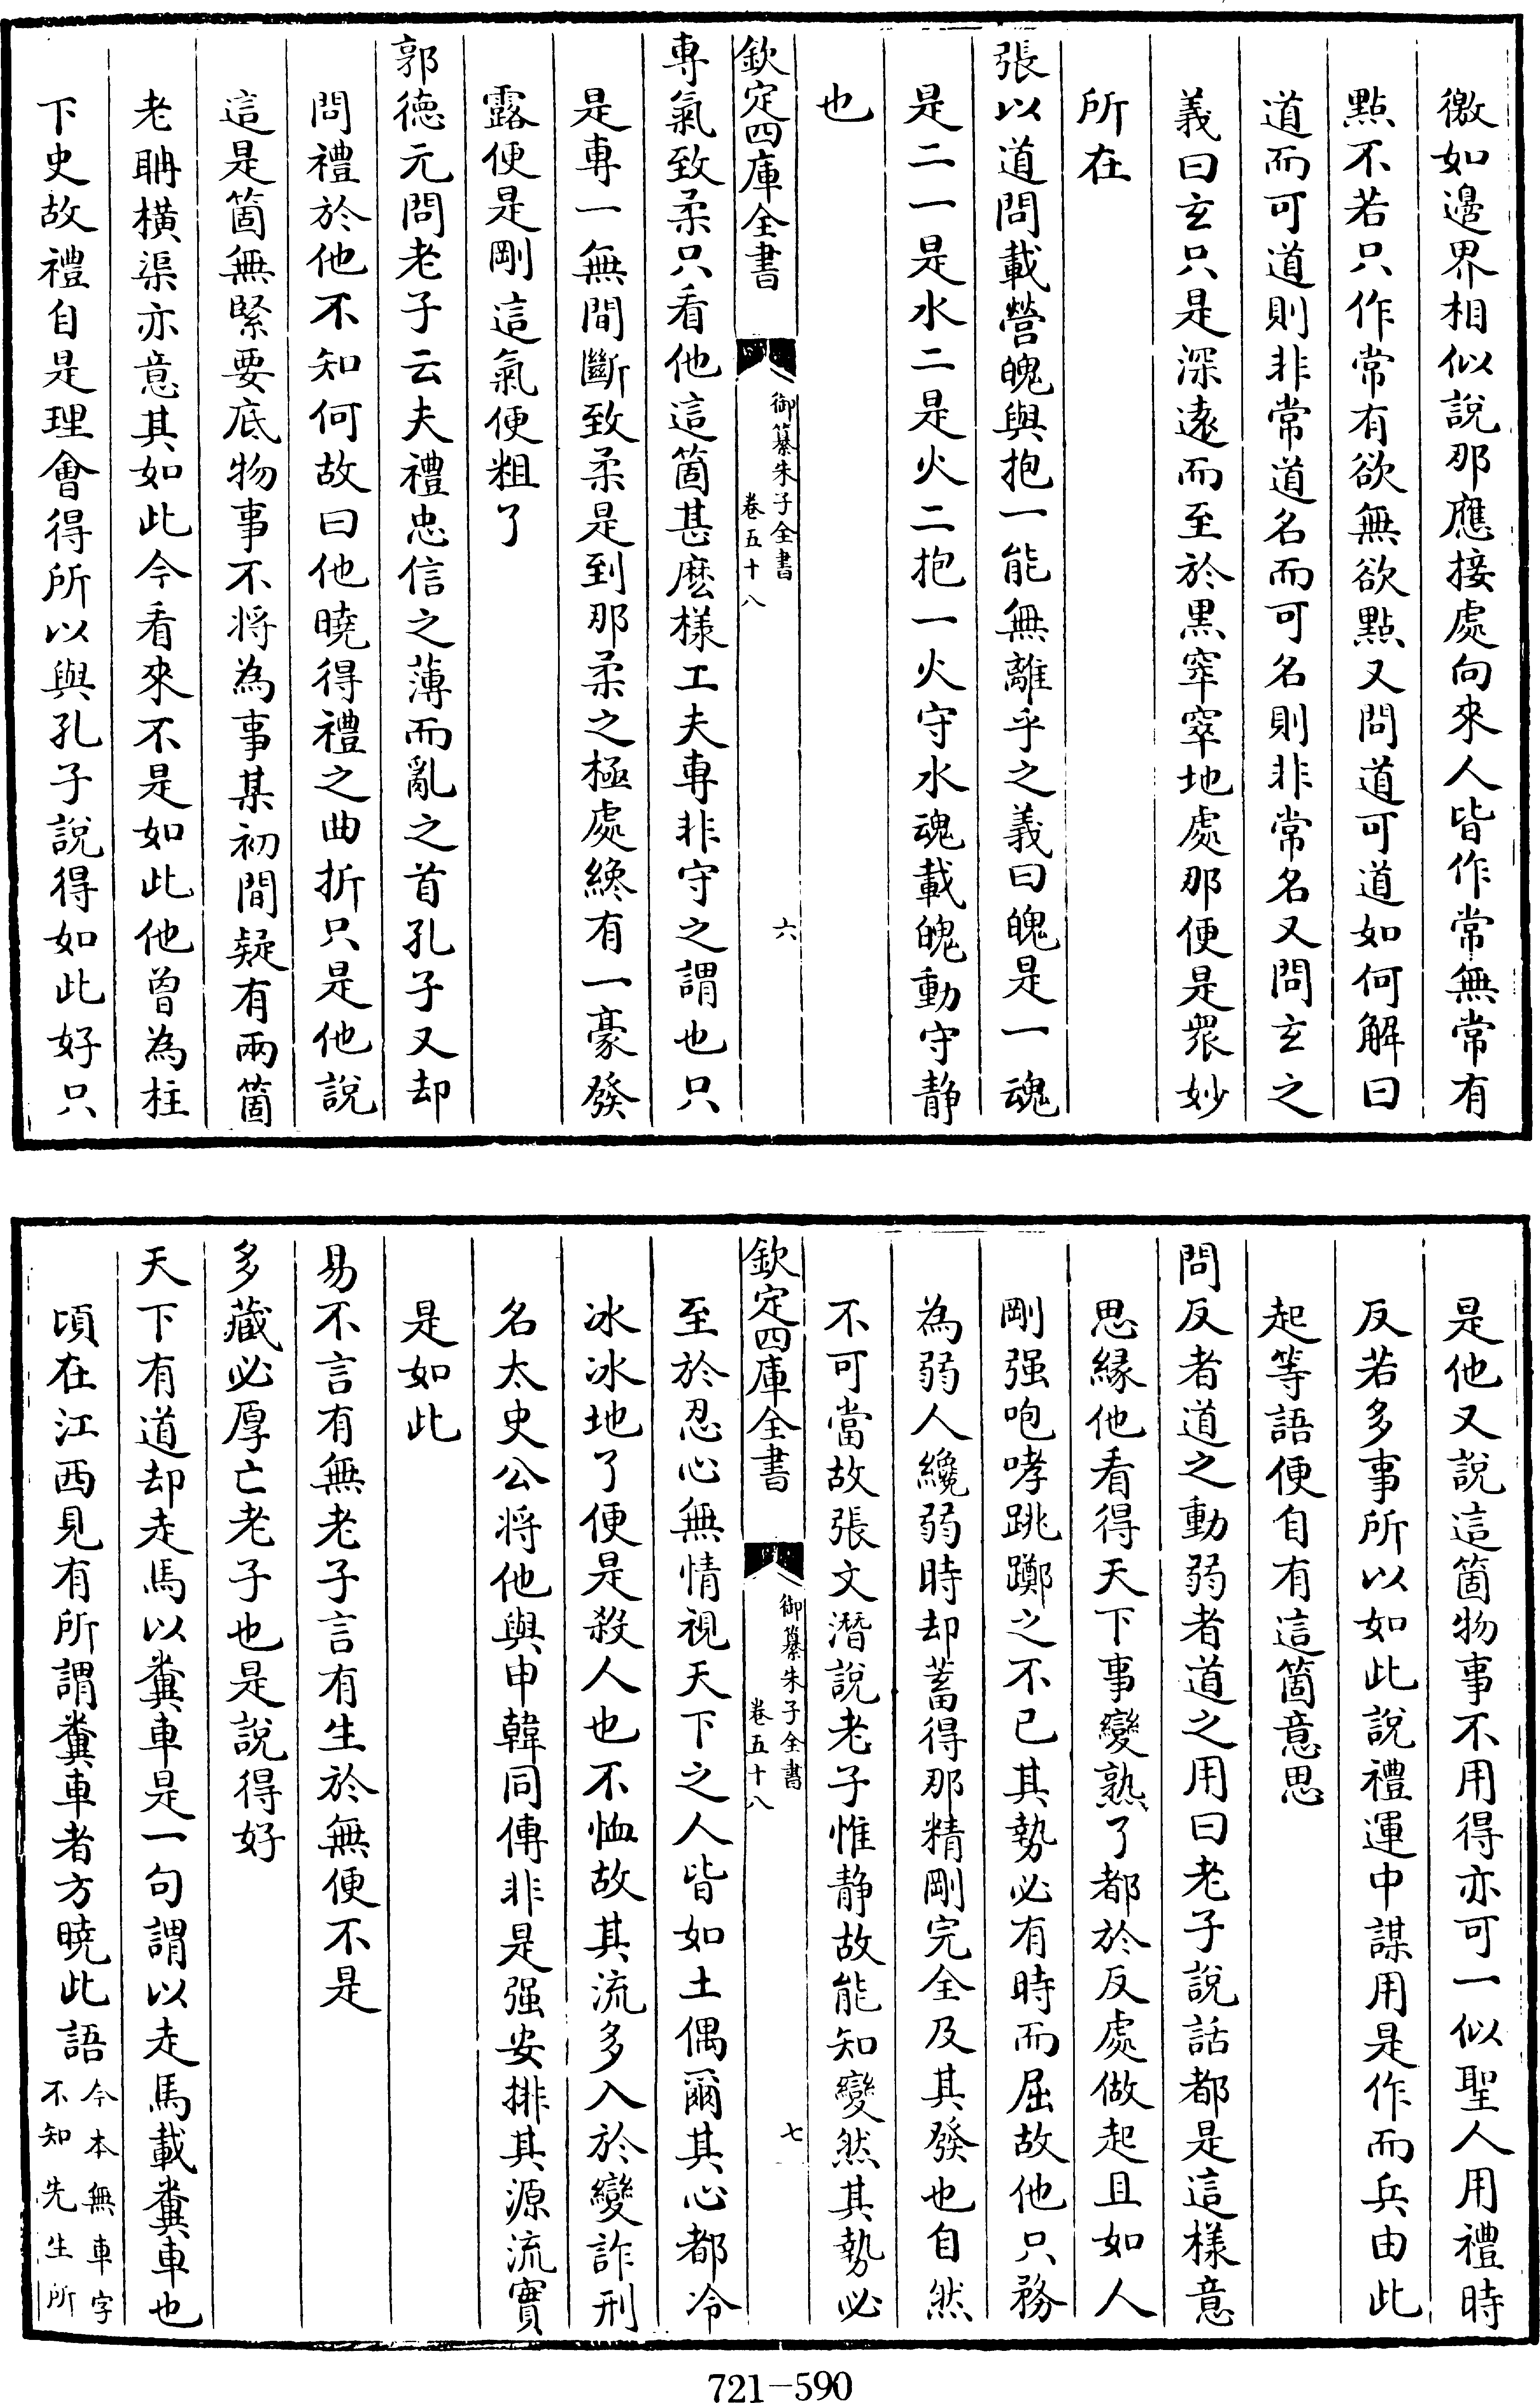 徼如邊界相似說那應接處向來人皆作常無常有
點不若只作常有欲無欲點又問道可道如何解曰
道而可道則非常道名而可名則非常名又問玄之
義曰玄只是深遠而至於黒窣窣地處那便是衆妙
所在
張以道問載營魄與抱一能無離乎之義曰魄是一魂
是二一是水二是火二抱一火守水魂載魄動守静
也
欽定四庫全書
御纂朱子全書
卷五十八
六
専氣致柔只看他這箇甚麽様工夫専非守之謂也只
是専一無間斷致柔是到那柔之極處纔有一豪發
露便是剛這氣便粗了
郭德元問老子云夫禮忠信之薄而亂之首孔子又却
問禮於他不知何故曰他曉得禮之曲折只是他說
這是箇無緊要底物事不將為事某初間疑有兩箇
老聃横渠亦意其如此今看來不是如此他曾為柱
下史故禮自是理會得所以與孔子說得如此好只
是他又說這箇物事不用得亦可一似聖人用禮時
反若多事所以如此說禮運中謀用是作而兵由此
起等語便自有這箇意思
問反者道之動弱者道之用曰老子說話都是這様意
思縁他看得天下事變熟了都於反處做起且如人
剛强咆哮跳躑之不已其勢必有時而屈故他只務
為弱人纔弱時却蓄得那精剛完全及其發也自然
不可當故張文潛說老子惟静故能知變然其勢必
欽定四庫全書
御纂朱子全書
卷五十八
七
至於忍心無情視天下之人皆如土偶爾其心都冷
冰冰地了便是殺人也不恤故其流多入於變詐刑
名太史公將他與申韓同傳非是强安排其源流實
是如此
易不言有無老子言有生於無便不是
多藏必厚亡老子也是說得好
天下有道却走馬以糞車是一句謂以走馬載糞車也
頃在江西見有所謂糞車者方曉此語今本無車字
不知先生所
721-590